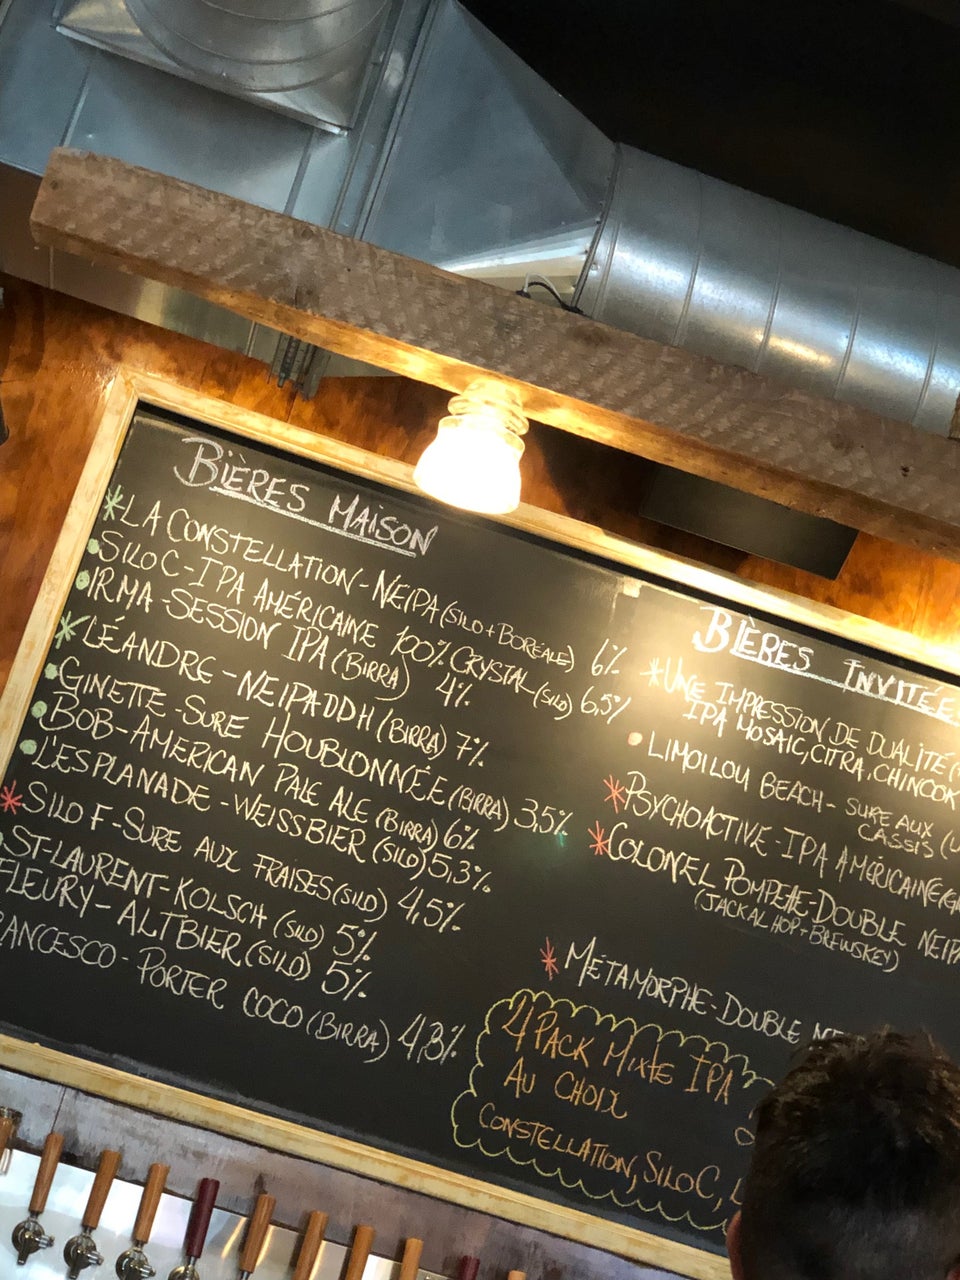 BIÈRES MAISON
*LA CONSTELLATION - NEIPA (SILO + BORÉALE) 6%
SILO C - IPA AMÉRICAINE 100% CRYSTAL (SILO) 6,5%
IRMA - SESSION IPA (BIRRA) 4%
*LÉANDRE - NEIPA DDH (BIRRA) 7%
GINETTE - SURE HOUBLONNÉE (BIRRA) 3,5%
BOB - AMERICAN PALE ALE (BIRRA) 6%
L'ESPLANADE - WEISSBIER (SILO) 5,3%
*SILO F - SURE AUX FRAISES (SILO) 4,5%
ST-LAURENT - KOLSCH (SILO) 5%
FLEURY - ALTBIER (SILO) 5%
RANCESCO - PORTER COCO (BIRRA) 4,8%
BIÈRES INVITÉE
*UNE IMPRESSION DE DUALITÉ (
IPA MOSAIC, CITRA, CHINOOK
LIMOILOU BEACH - SURE AUX
CASSIS (
*PSYCHOACTIVE - IPA AMÉRICAINE (
*COLONEL POMPETTE - DOUBLE NEIPA
(JACKALHOP + BREWSKEY)
*MÉTAMORPHE - DOUBLE NE
4 PACK MIXTE IPA
AU CHOIX
CONSTELLATION, SILO C,